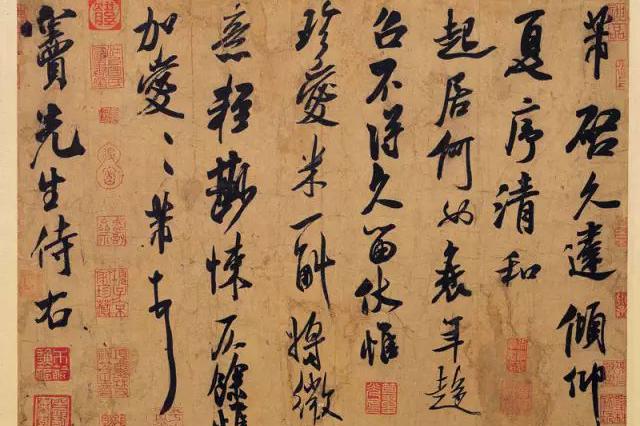 芾启久違傾仰
夏序清和
起居何如衰年趨
召不得久留伏惟
珍愛米一斛將微
意輕尠悚仄餘惟
加愛〻芾頓首
竇先生侍右